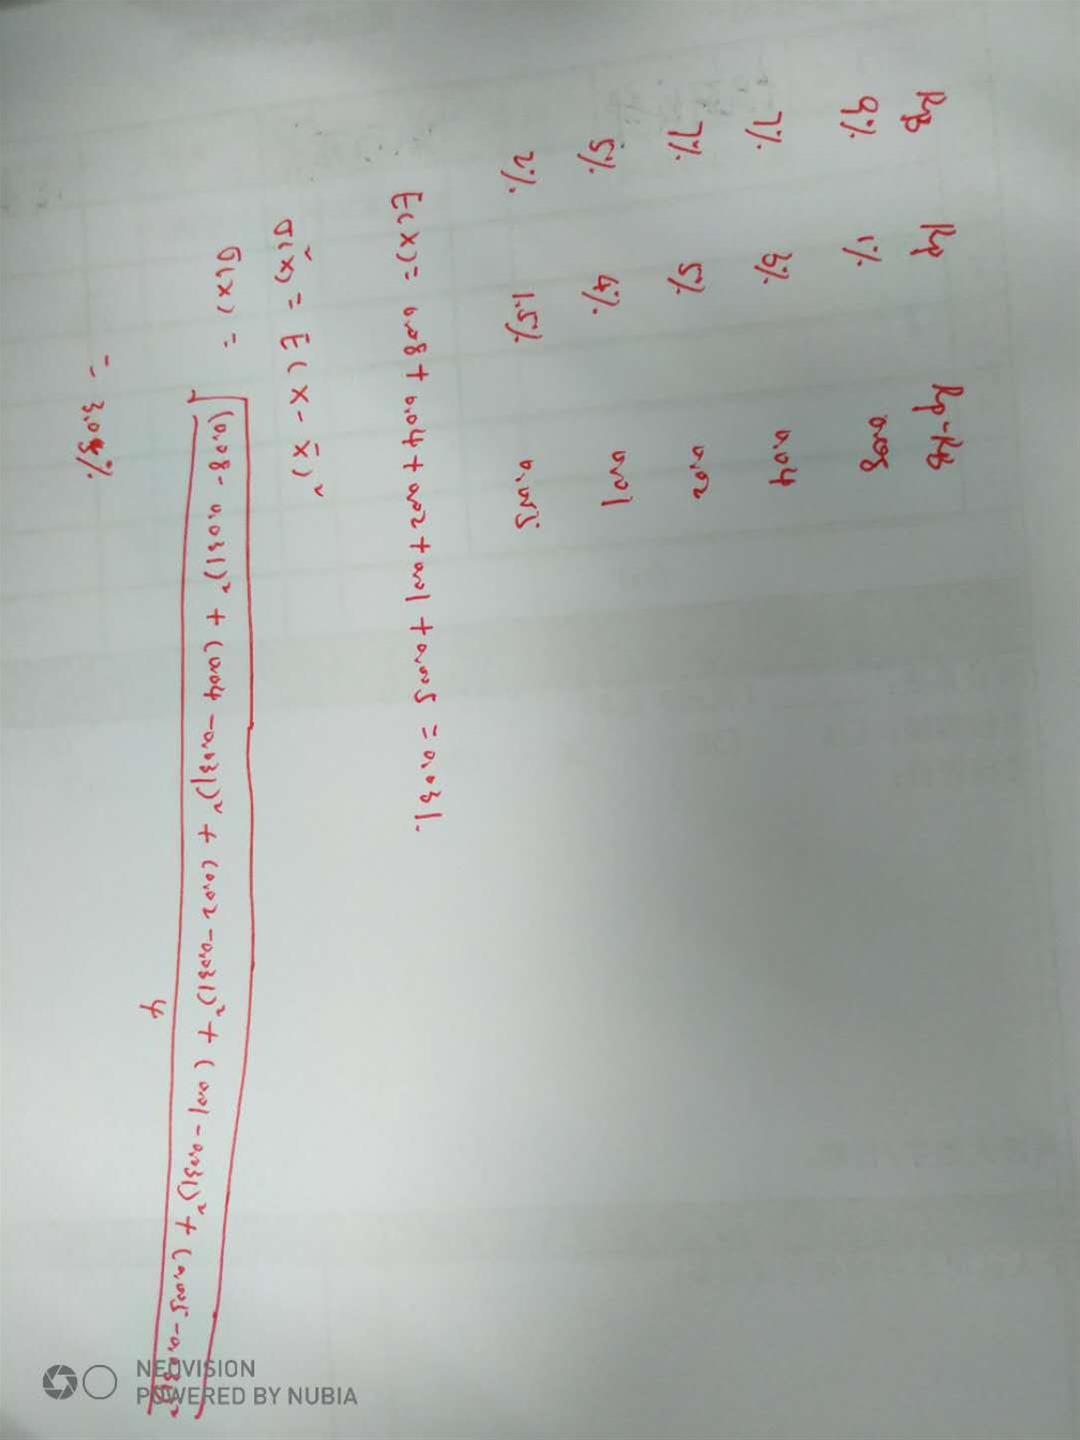 RB Rp Rp-RB
9% 1% 0.08
7% 3% 0.04
7% 5% 0.02
5% 4% 0.01
2% 1.5% 0.005
E(X)= 0.08+0.04+0.02+0.01+0.005=0.031.
σ²(X)= E(X-X̄)²
σ(X)= √(0.08-0.031)²+(0.04-0.031)²+(0.02-0.031)²+(0.01-0.031)²+(0.005-0.031)²
4
= 3.0%
NEOVISION
POWERED BY NUBIA